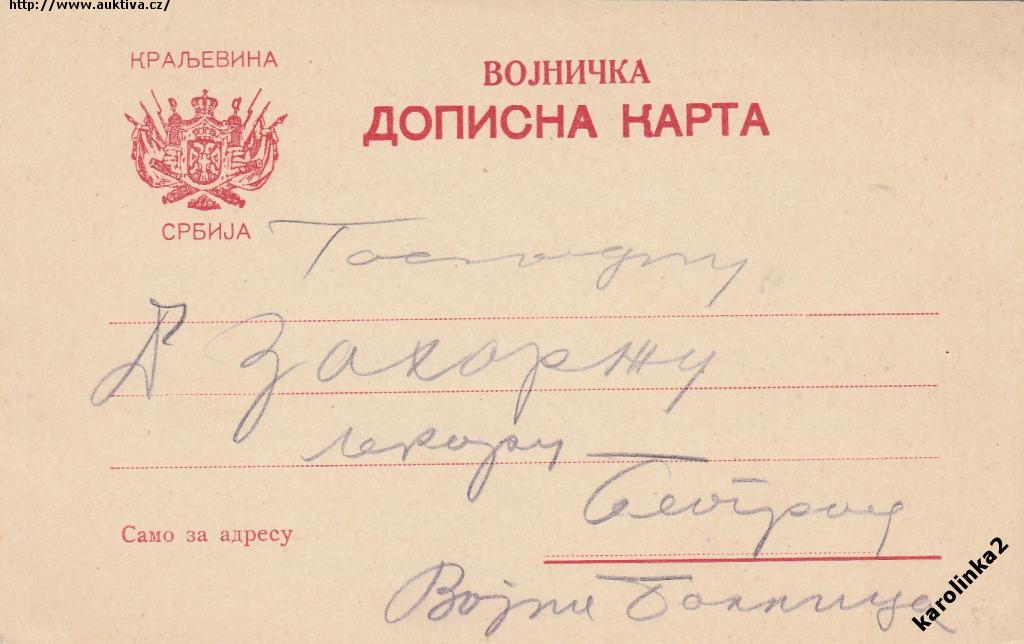 http://www.auktiva.cz/
КРАЉЕВИНА
СРБИЈА
ВОЈНИЧКА
ДОПИСНА КАРТА
Господину
Др Захоржу
лекару
Београд
Војна Болница
Само за адресу
karolinka2